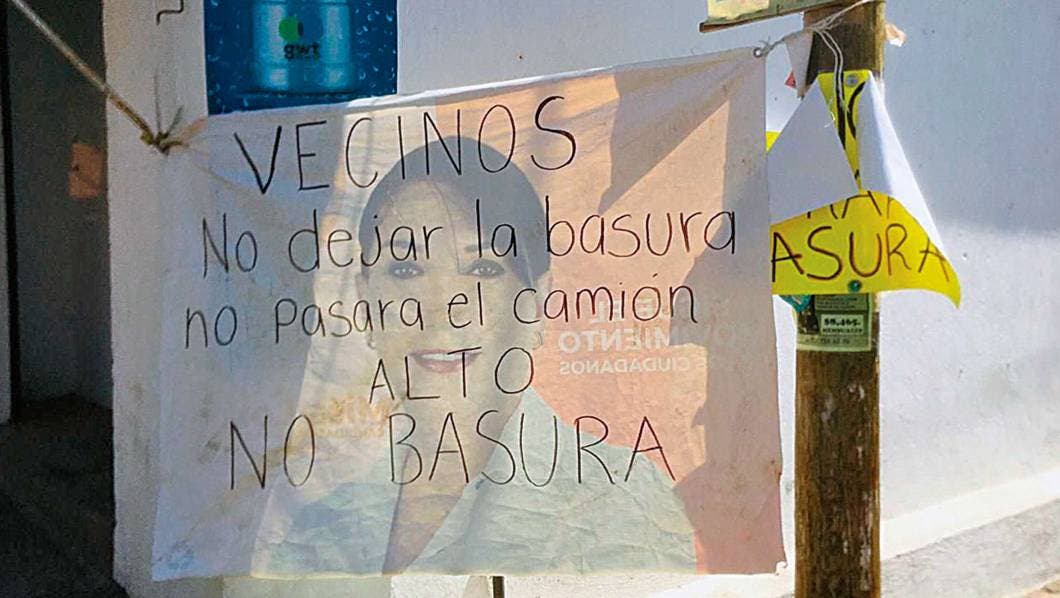 gwt
VECINOS
No dejar la basura
no pasara el camión
ALTO
NO BASURA
MIENTO
CIUDADANOS
ASURA